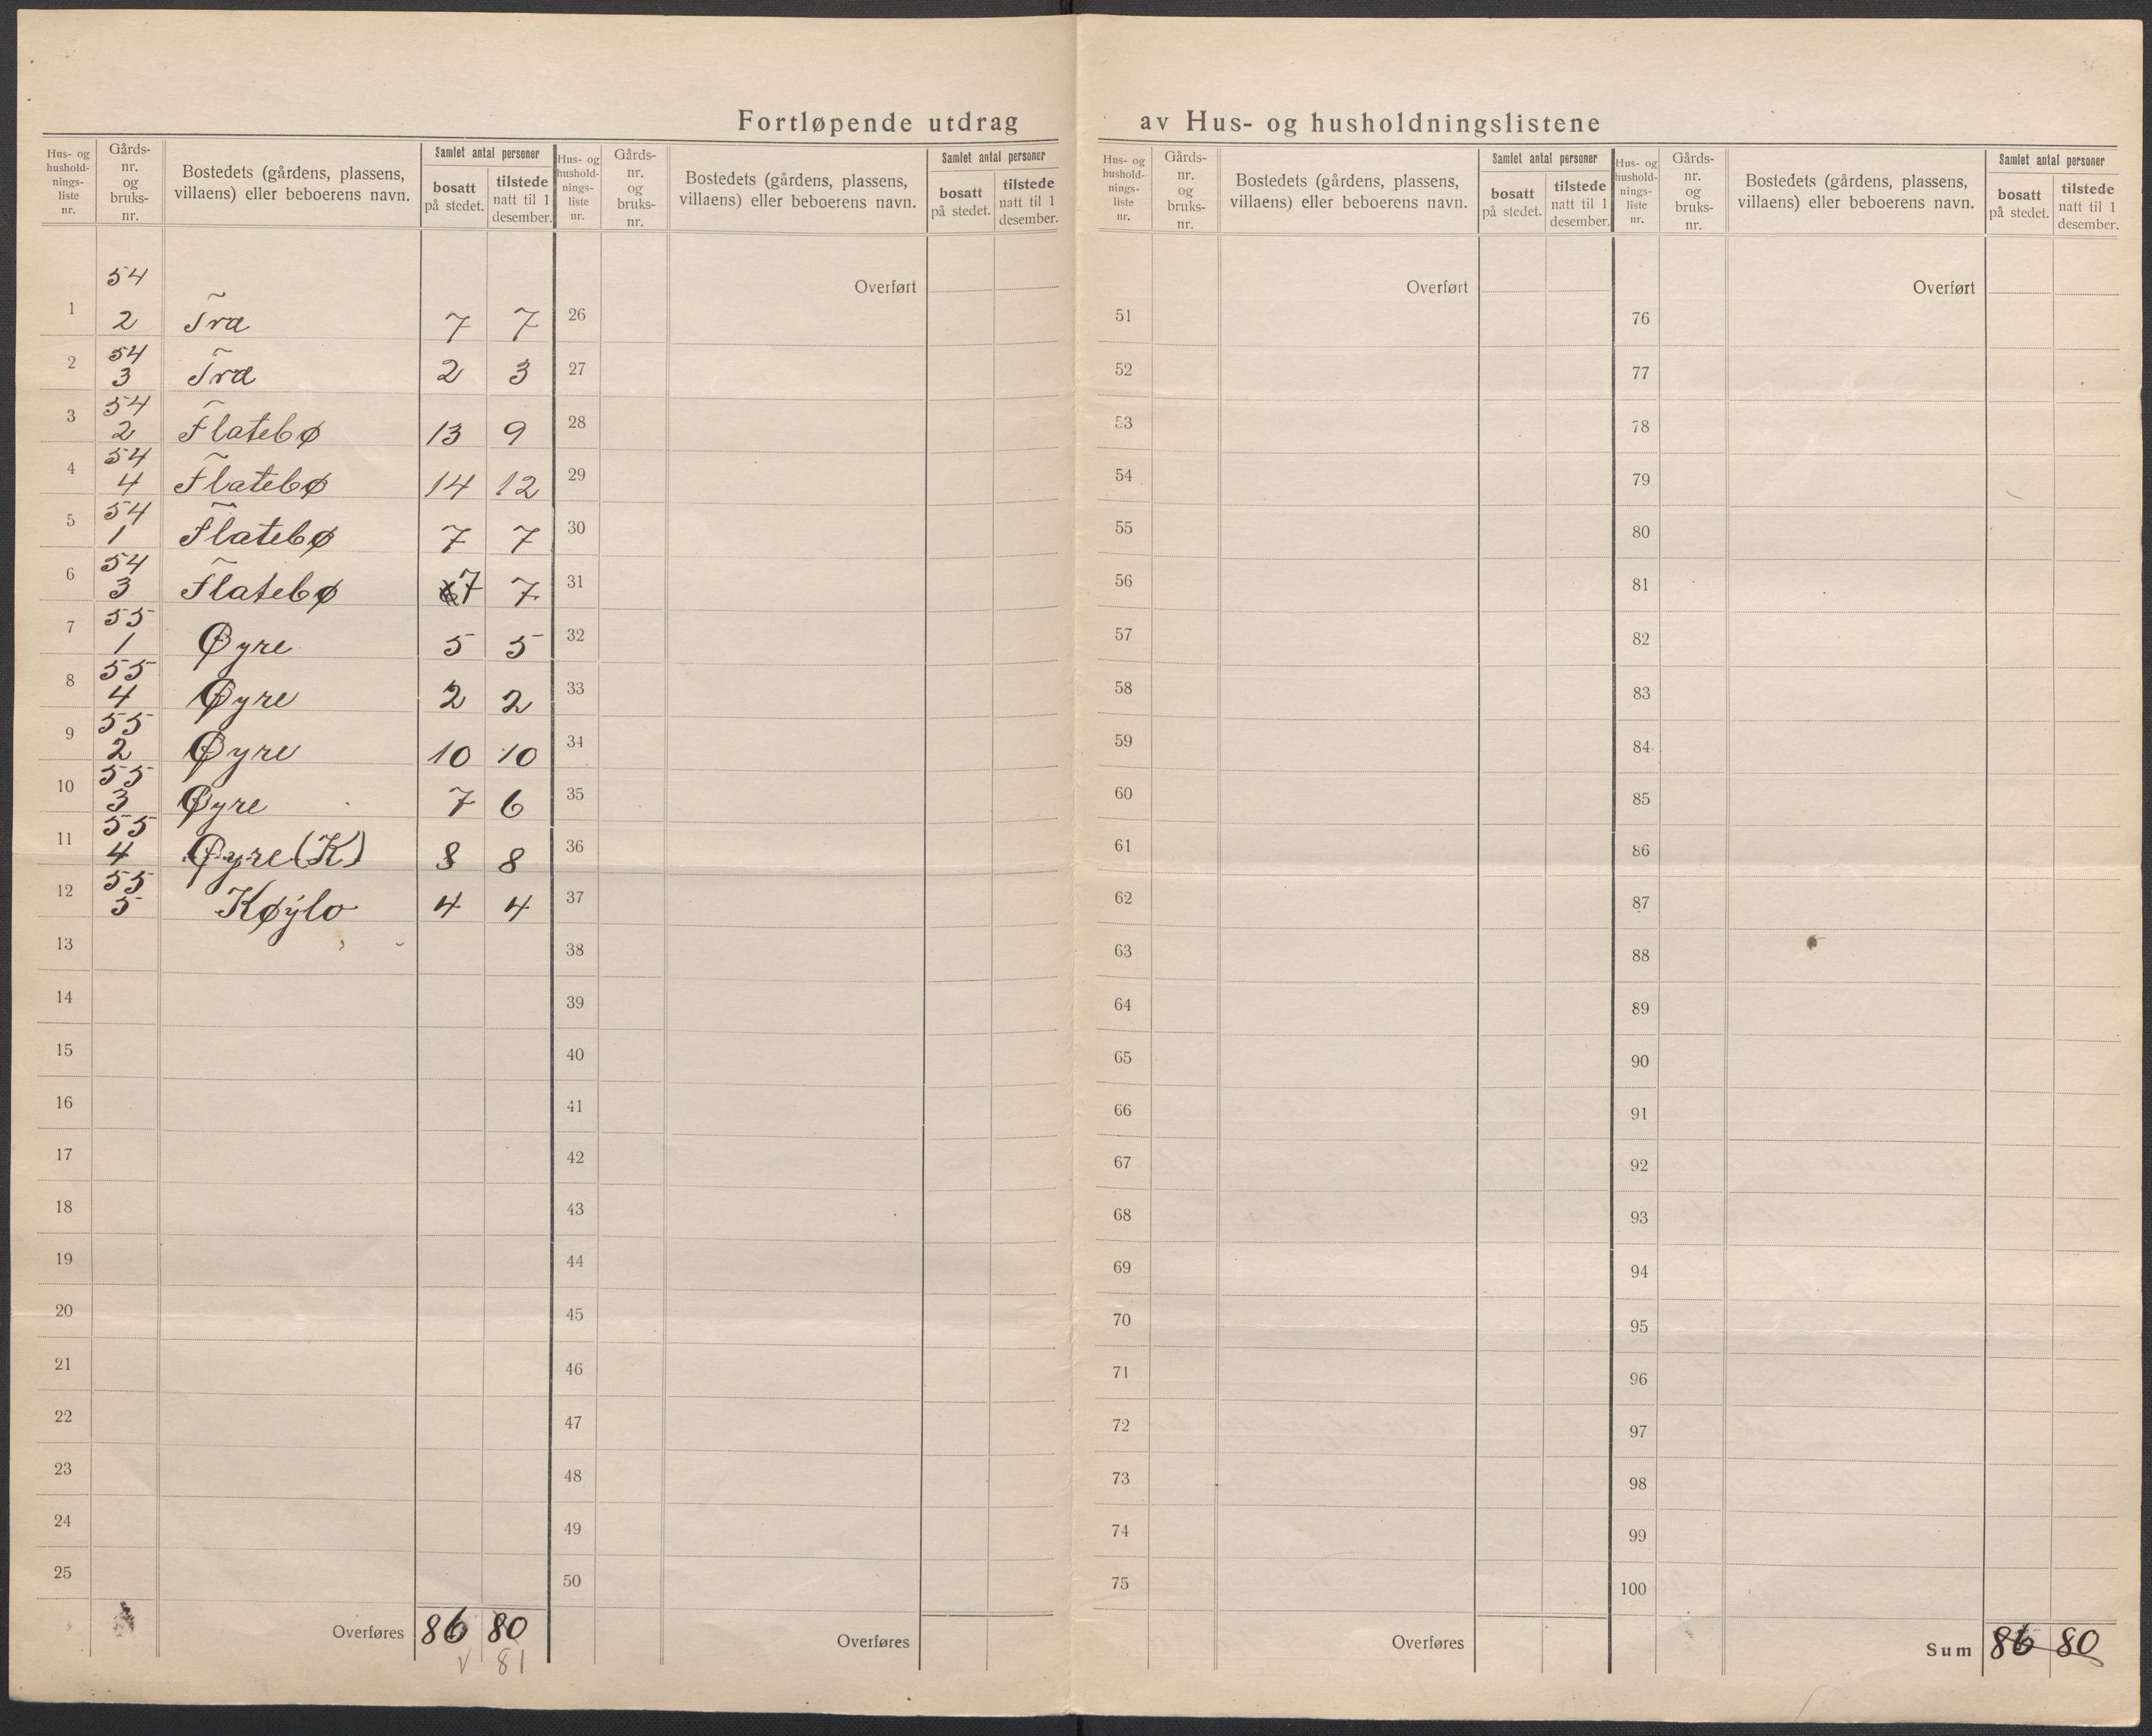 Fortløpende utdrag av Hus- og husholdningslistene
Hus- og hushold-nings-liste nr. Gårds-nr. og bruks-nr. Bostedets (gårdens, plassens, villaens) eller beboerens navn. Samlet antal personer bosatt på stedet. tilstede natt til 1 desember.
Hus- og hushold-nings-liste nr. Gårds-nr. og bruks-nr. Bostedets (gårdens, plassens, villaens) eller beboerens navn. Samlet antal personer bosatt på stedet. tilstede natt til 1 desember.
Hus- og hushold-nings-liste nr. Gårds-nr. og bruks-nr. Bostedets (gårdens, plassens, villaens) eller beboerens navn. Samlet antal personer bosatt på stedet. tilstede natt til 1 desember.
Hus- og hushold-nings-liste nr. Gårds-nr. og bruks-nr. Bostedets (gårdens, plassens, villaens) eller beboerens navn. Samlet antal personer bosatt på stedet. tilstede natt til 1 desember.
1 54 2 Tra 7 7
2 54 3 Tra 2 3
3 54 2 Flatebø 13 9
4 54 4 Flatebø 14 12
5 54 1 Flatebø 7 7
6 54 3 Flatebø 7 7
7 55 1 Øyre 5 5
8 55 4 Øyre 2 2
9 55 2 Øyre 10 10
10 55 3 Øyre 7 6
11 55 4 Øyre (K) 8 8
12 55 5 Køylo 4 4
13
14
15
16
17
18
19
20
21
22
23
24
25
Overføres 86 80
81
Overført
26
27
28
29
30
31
32
33
34
35
36
37
38
39
40
41
42
43
44
45
46
47
48
49
50
Overføres
Overført
51
52
53
54
55
56
57
58
59
60
61
62
63
64
65
66
67
68
69
70
71
72
73
74
75
Overføres
Overført
76
77
78
79
80
81
82
83
84
85
86
87
88
89
90
91
92
93
94
95
96
97
98
99
100
Sum 86 80